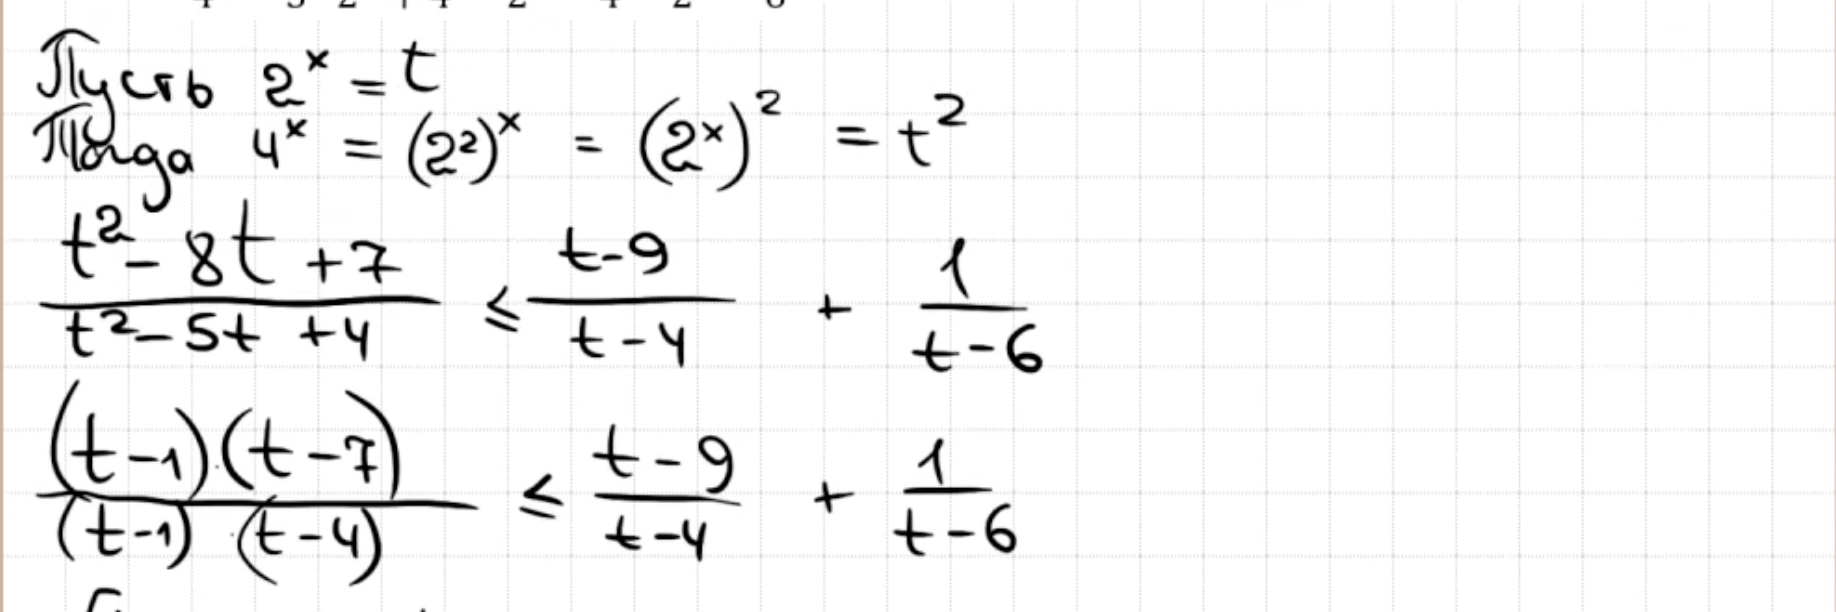 Пусть 2^x = t
Тогда 4^x = (2²)^x = (2^x)² = t²
(t² - 8t + 7)/(t² - 5t + 4) ≤ (t - 9)/(t - 4) + 1/(t - 6)
((t - 1)(t - 7))/((t - 1)(t - 4)) ≤ (t - 9)/(t - 4) + 1/(t - 6)